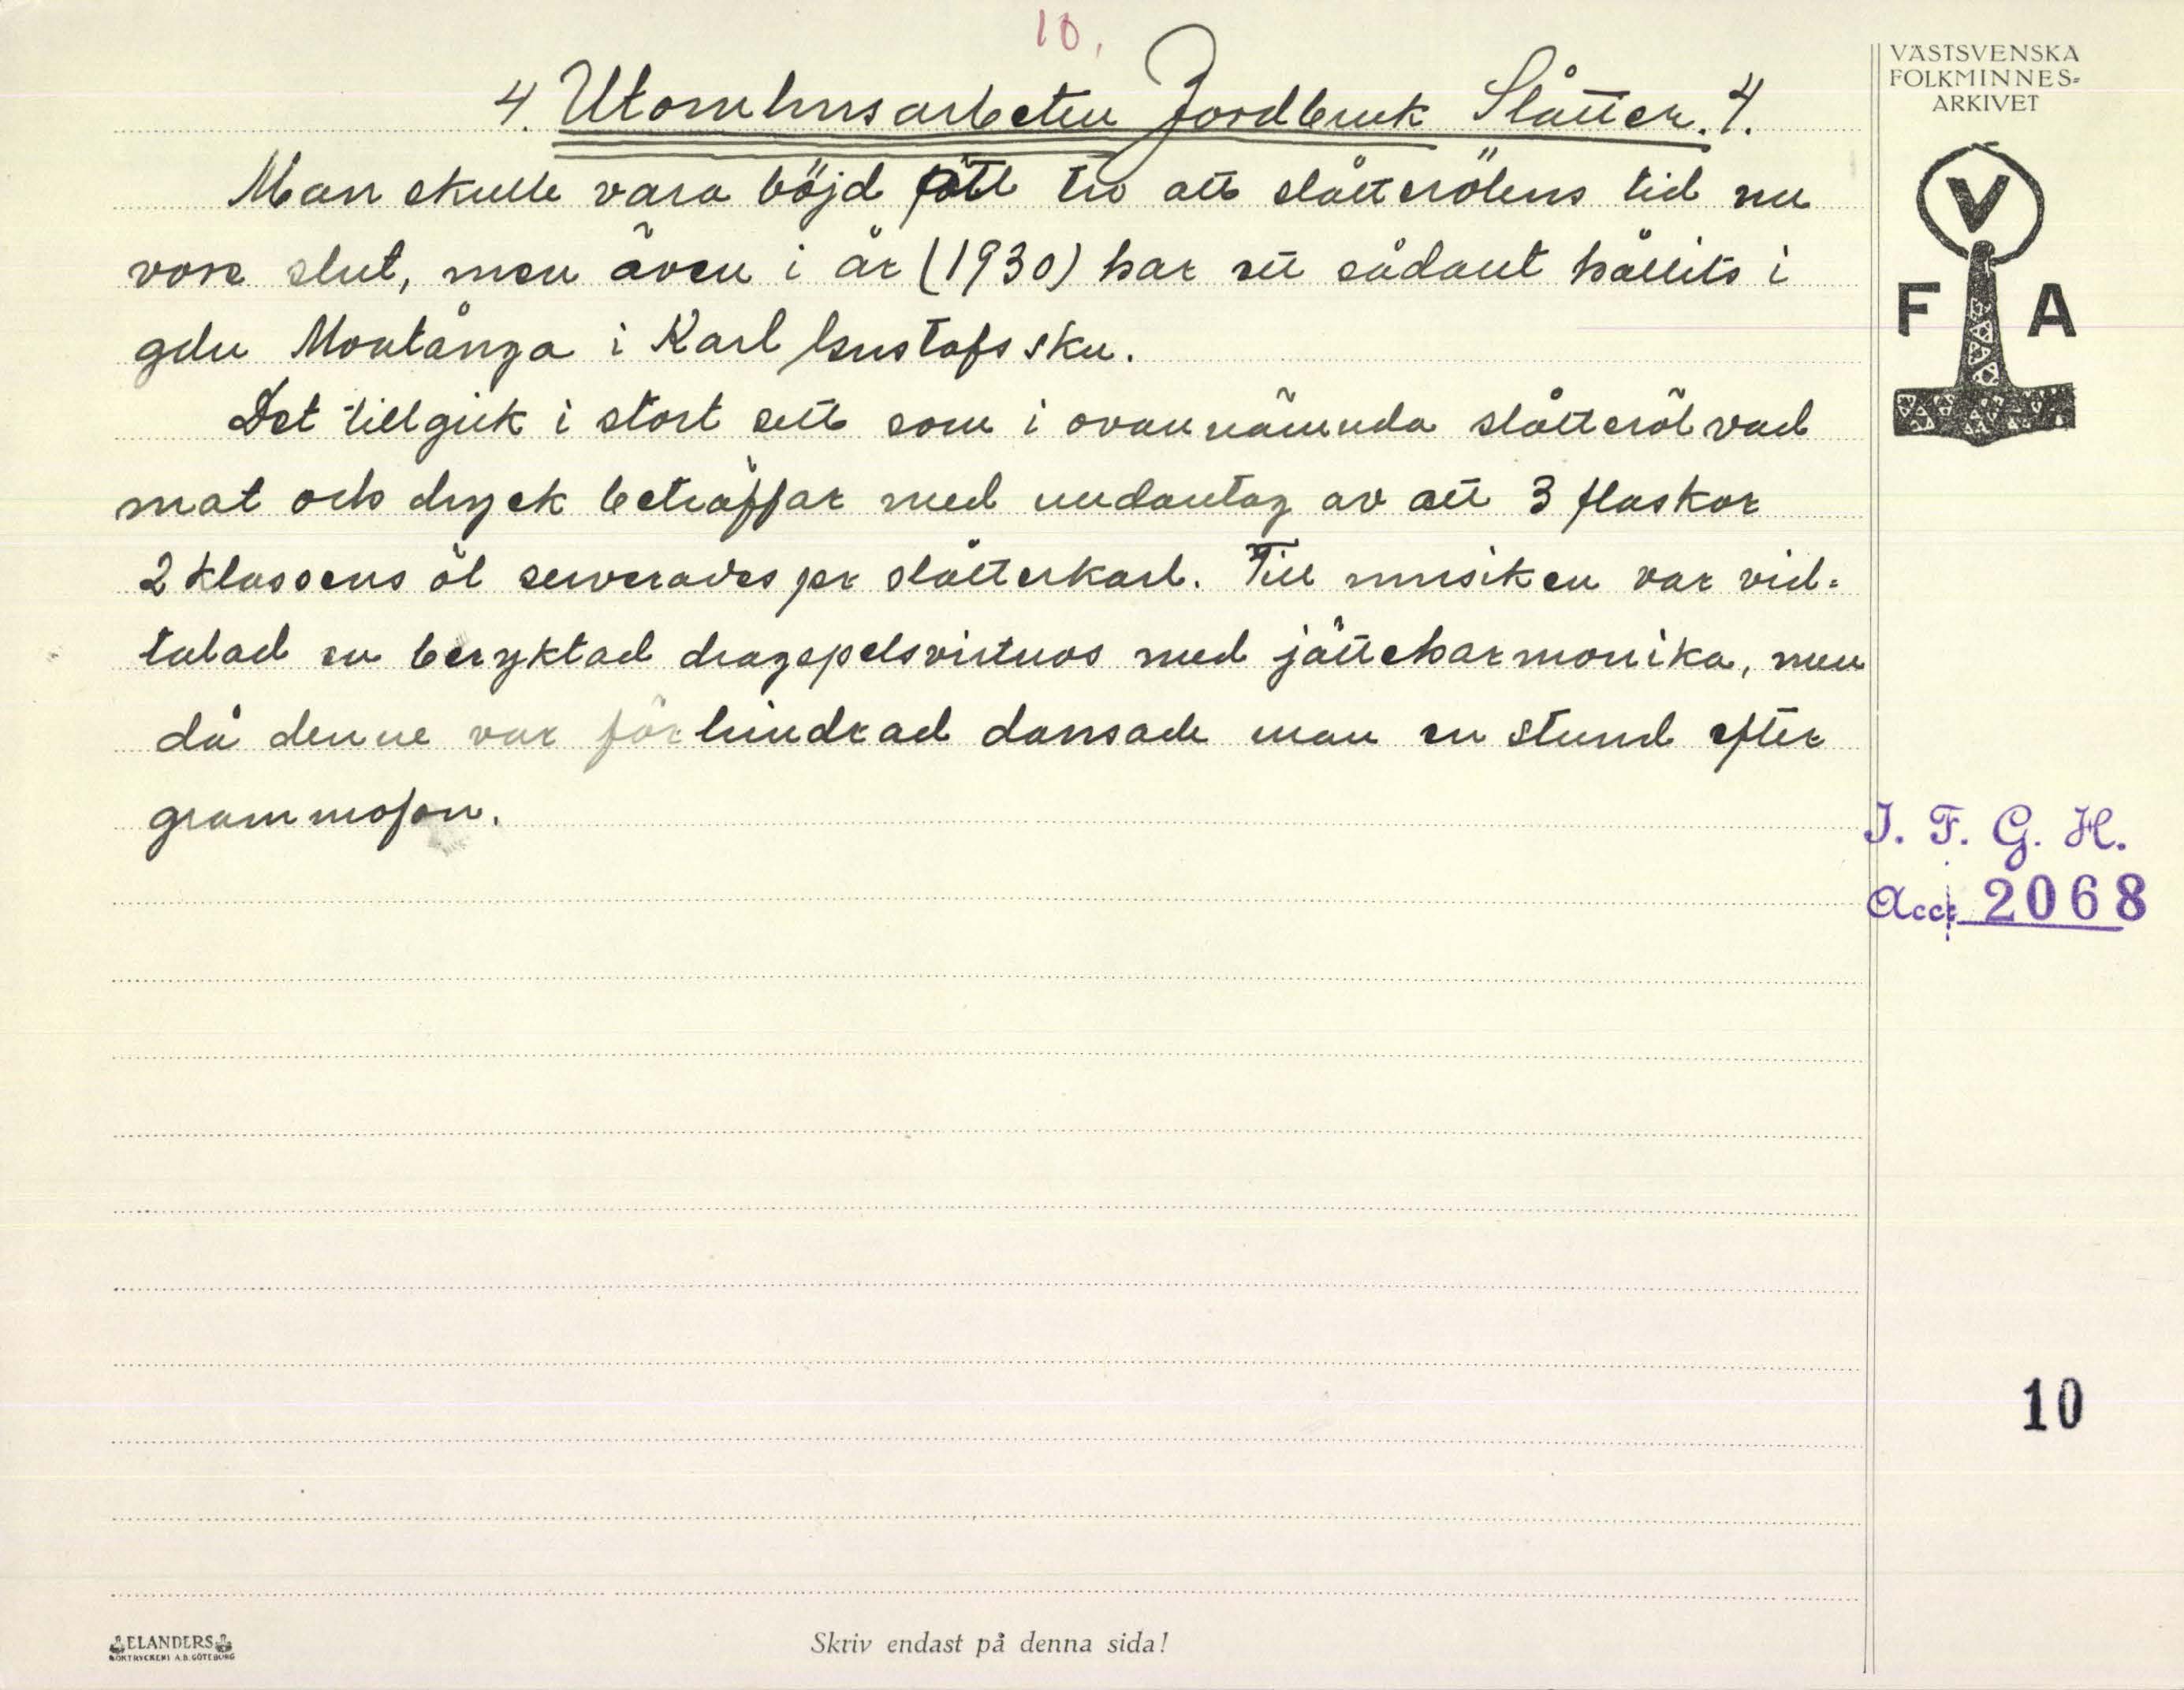 10.
4. Utomhusarbeten Jordbruk Slåtter. 4.
Man skulle vara böjd att tro att slåtterölens tid nu
vore slut, men även i år (1930) har ett sådant hållits i
gdn Montånga i Karl Gustafs skn.
Det tillgick i stort sett som i ovannämnda slåtteröl vad
mat och dryck beträffar med undantag av att 3 flaskor
2 klassens öl serverades pr slåtterkarl. Till musiken var vid=
talad en beryktad dragspelsvirtuos med jätteharmonika, men
då denne var förhindrad dansade man en stund efter
grammofon.
VÄSTSVENSKA
FOLKMINNES=
ARKIVET
V
F A
I. F. G. H.
Acc: 2068
10
ELANDERS
BOKTRYCKERI A.B. GÖTEBORG
Skriv endast på denna sida!